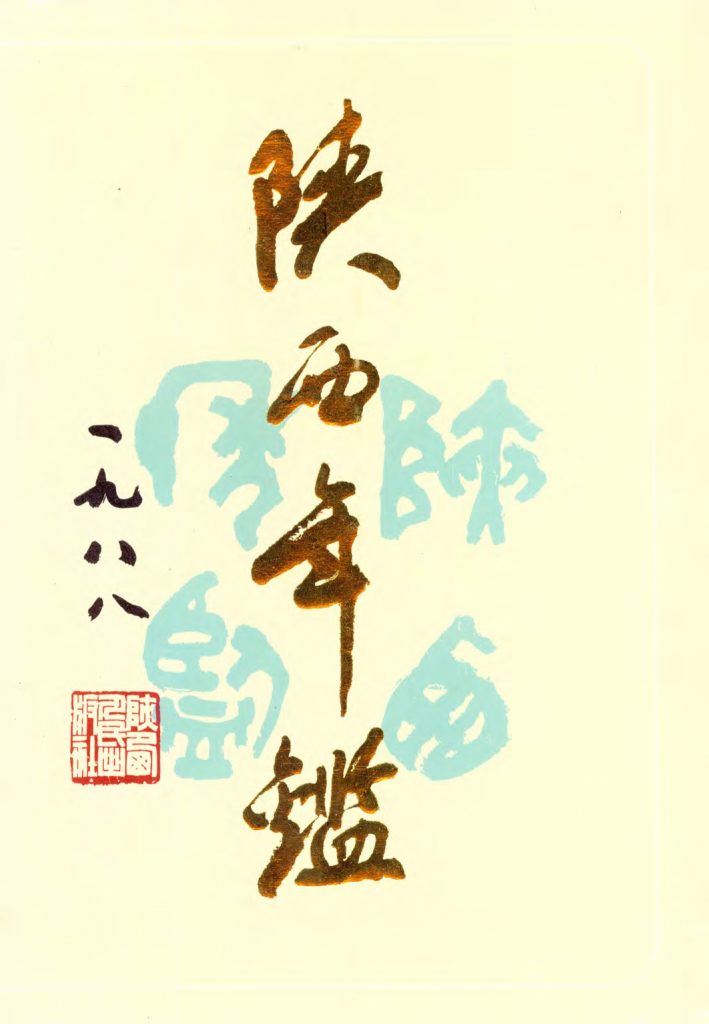 陕西年鑑
一九八八
陕西
年鑑
陕西人民出版社